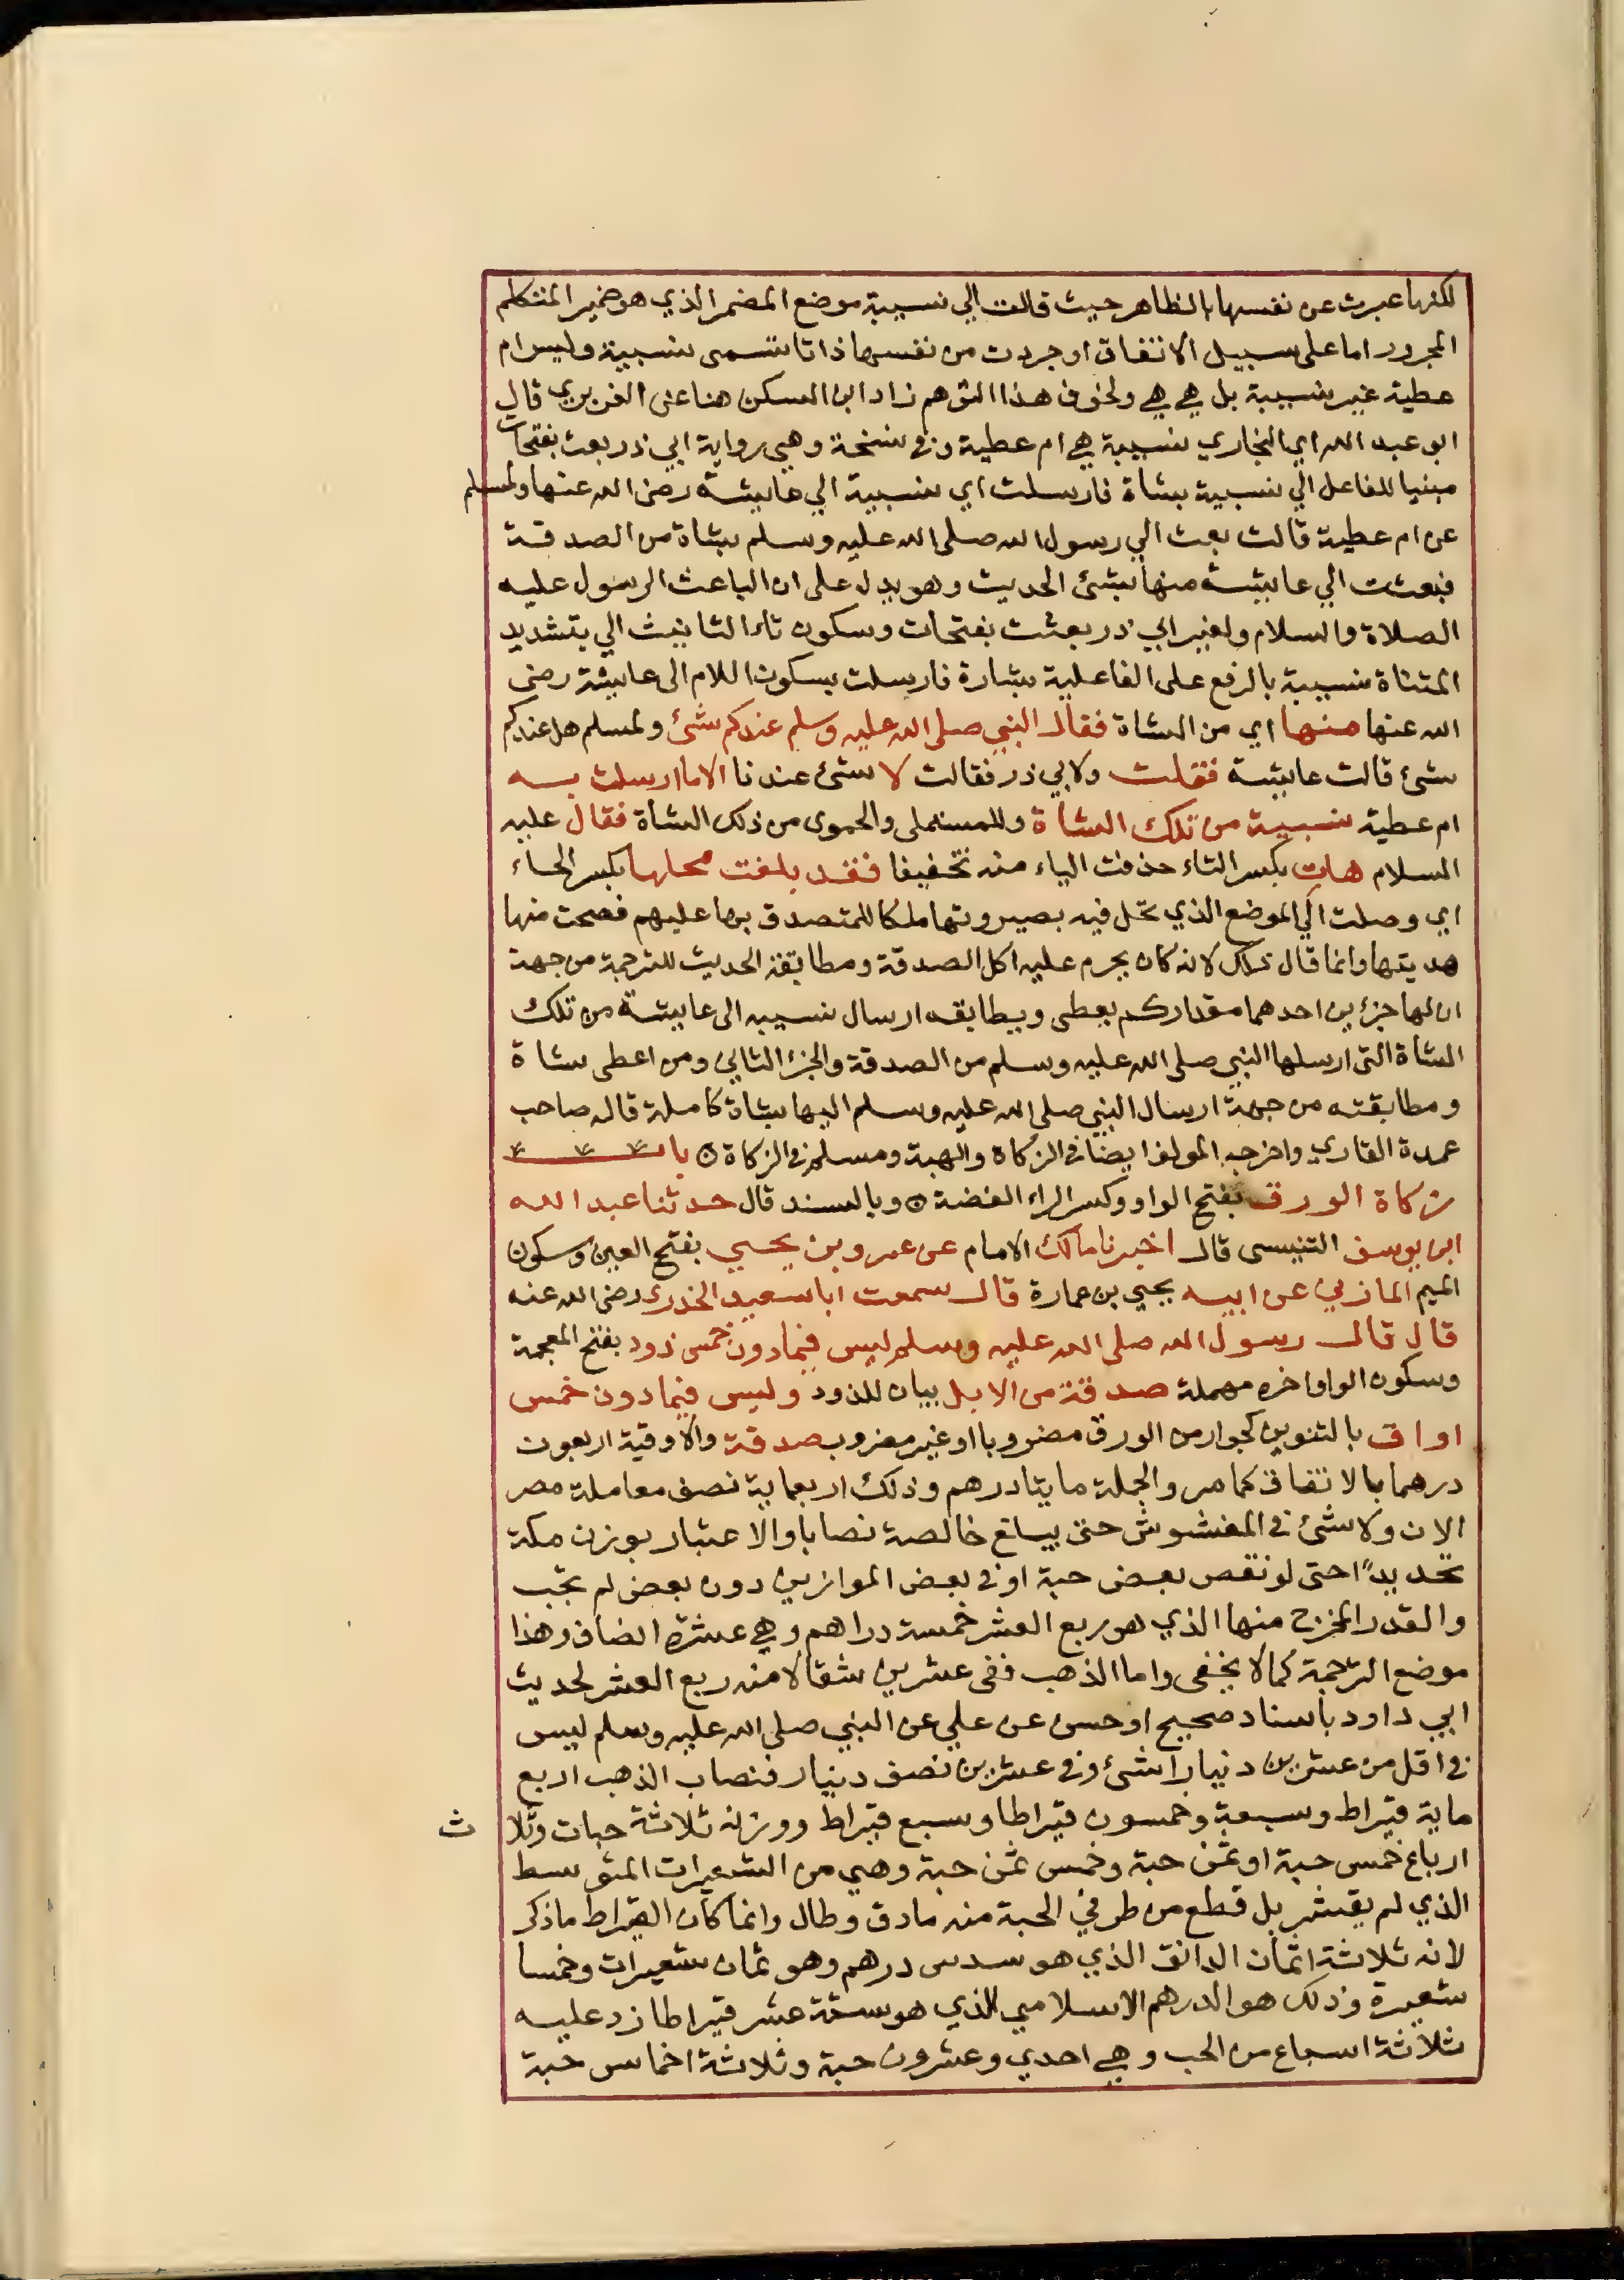 لكنها عبرت عن نفسها بالظاهر حيث قالت الي نسيبة موضع المضمر الذي هو ضمير المتكلم
المجرور اما على سبيل الالتفات او جردت من نفسها ذاتا تسمى نسيبة وليس ام
عطية غير نسيبة بل هي هي ولخوف هذا التوهم زاد ابن السكن هنا عن الفربري قال
ابو عبد الله اي البخاري نسيبة هي ام عطية وفي نسخة وهي رواية ابي ذر بعث بفتحات
مبنيا للفاعل الي نسيبة بشاة فارسلت اي نسيبة الي عايشة رضي الله عنها ولمسلم
عن ام عطية قالت بعث الي رسول الله صلى الله عليه وسلم بشاة من الصدقة
فبعثت الي عايشة منها بشئ الحديث وهو يدل على ان الباعث الرسول عليه
الصلاة والسلام ولغير ابي ذر بعثت بفتحات وسكون تاء التانيث الي بتشديد
المثناة نسيبة بالرفع على الفاعلية بشارة فارسلت بسكون اللام الى عايشة رضي
الله عنها منها اي من الشاة فقال النبي صلى الله عليه وسلم عندكم شئ ولمسلم هل عندكم
شئ قالت عايشة فقلت ولابي ذر فقالت لا شئ عندنا الا ما ارسلت به
ام عطية نسيبة من تلك الشاة وللمستملي والحموي من ذلك الشاة فقال عليه
السلام هات بكسر التاء حذفت الياء منه تخفيفا فقد بلغت محلها بكسر الحاء
اي وصلت الي الموضع الذي تحل فيه بصيرورتها ملكا للمتصدق بها عليهم فصحت منها
هديتها وانما قال ذلك لانه كان يحرم عليه اكل الصدقة ومطابقة الحديث للترجمة من جهة
ان لها جزئين احدهما مقدار كم يعطى ويطابقه ارسال نسيبه الى عايشة من تلك
الشاة التي ارسلها النبي صلى الله عليه وسلم من الصدقة والجزء الثاني ومن اعطى شاة
ومطابقته من جهة ارسال النبي صلى الله عليه وسلم اليها بشاة كاملة قاله صاحب
عمدة القاري واخرجه المولف ايضا في الزكاة والهبة ومسلم في الزكاة باب
زكاة الورق بفتح الواو وكسر الراء الفضة وبالسند قال حدثنا عبد الله
ابن يوسف التنيسي قال اخبرنا مالك الامام عن عمرو بن يحيي بفتح العين وسكون
الميم المازني عن ابيه يحيي بن عمارة قال سمعت ابا سعيد الخدري رضي الله عنه
قال قال رسول الله صلى الله عليه وسلم ليس فيما دون خمس ذود بفتح المعجمة
وسكون الواو اخره مهملة صدقة من الابل بيان للذود وليس فيما دون خمس
اواق بالتنوين كجوار من الورق مضروبا او غير مضروب صدقة والاوقية اربعون
درهما بالاتفاق كما مر والجملة مايتا درهم وذلك اربعماية نصف معاملة مصر
الان ولا شئ في المغشوش حتى يبلغ خالصة نصابا والاعتبار بوزن مكة
تحديدا حتى لو نقص بعض حبة او في بعض الموازين دون بعض لم تجب
والقدر المخرج منها الذي هو ربع العشر خمسة دراهم وهي عشرة انصاف وهذا
موضع الترجمة كما لا يخفى واما الذهب ففى عشرين مثقالا منه ربع العشر لحديث
ابي داود باسناد صحيح او حسن عن علي عن النبي صلى الله عليه وسلم ليس
في اقل من عشرين دنيارا شئ وفي عشرين نصف دينار فنصاب الذهب اربع
ماية قيراط وسبعة وخمسون قيراطا وسبع قيراط ووزنه ثلاثة حبات وثلا ث
ارباع خمس حبة او ثمن حبة وخمس ثمن حبة وهي من الشعيرات المتوسط
الذي لم يقشر بل قطع من طرفي الحبة منه ما دق وطال وانما كان القيراط ما ذكر
لانه ثلاثة اثمان الدانق الذي هو سدس درهم وهو ثمان شعيرات وخمسا
شعيرة وذلك هو الدرهم الاسلامي الذي هو ستة عشر قيراطا زد عليه
ثلاثة اسباع من الحب وهي احدي وعشرون حبة وثلاثة اخماس حبة